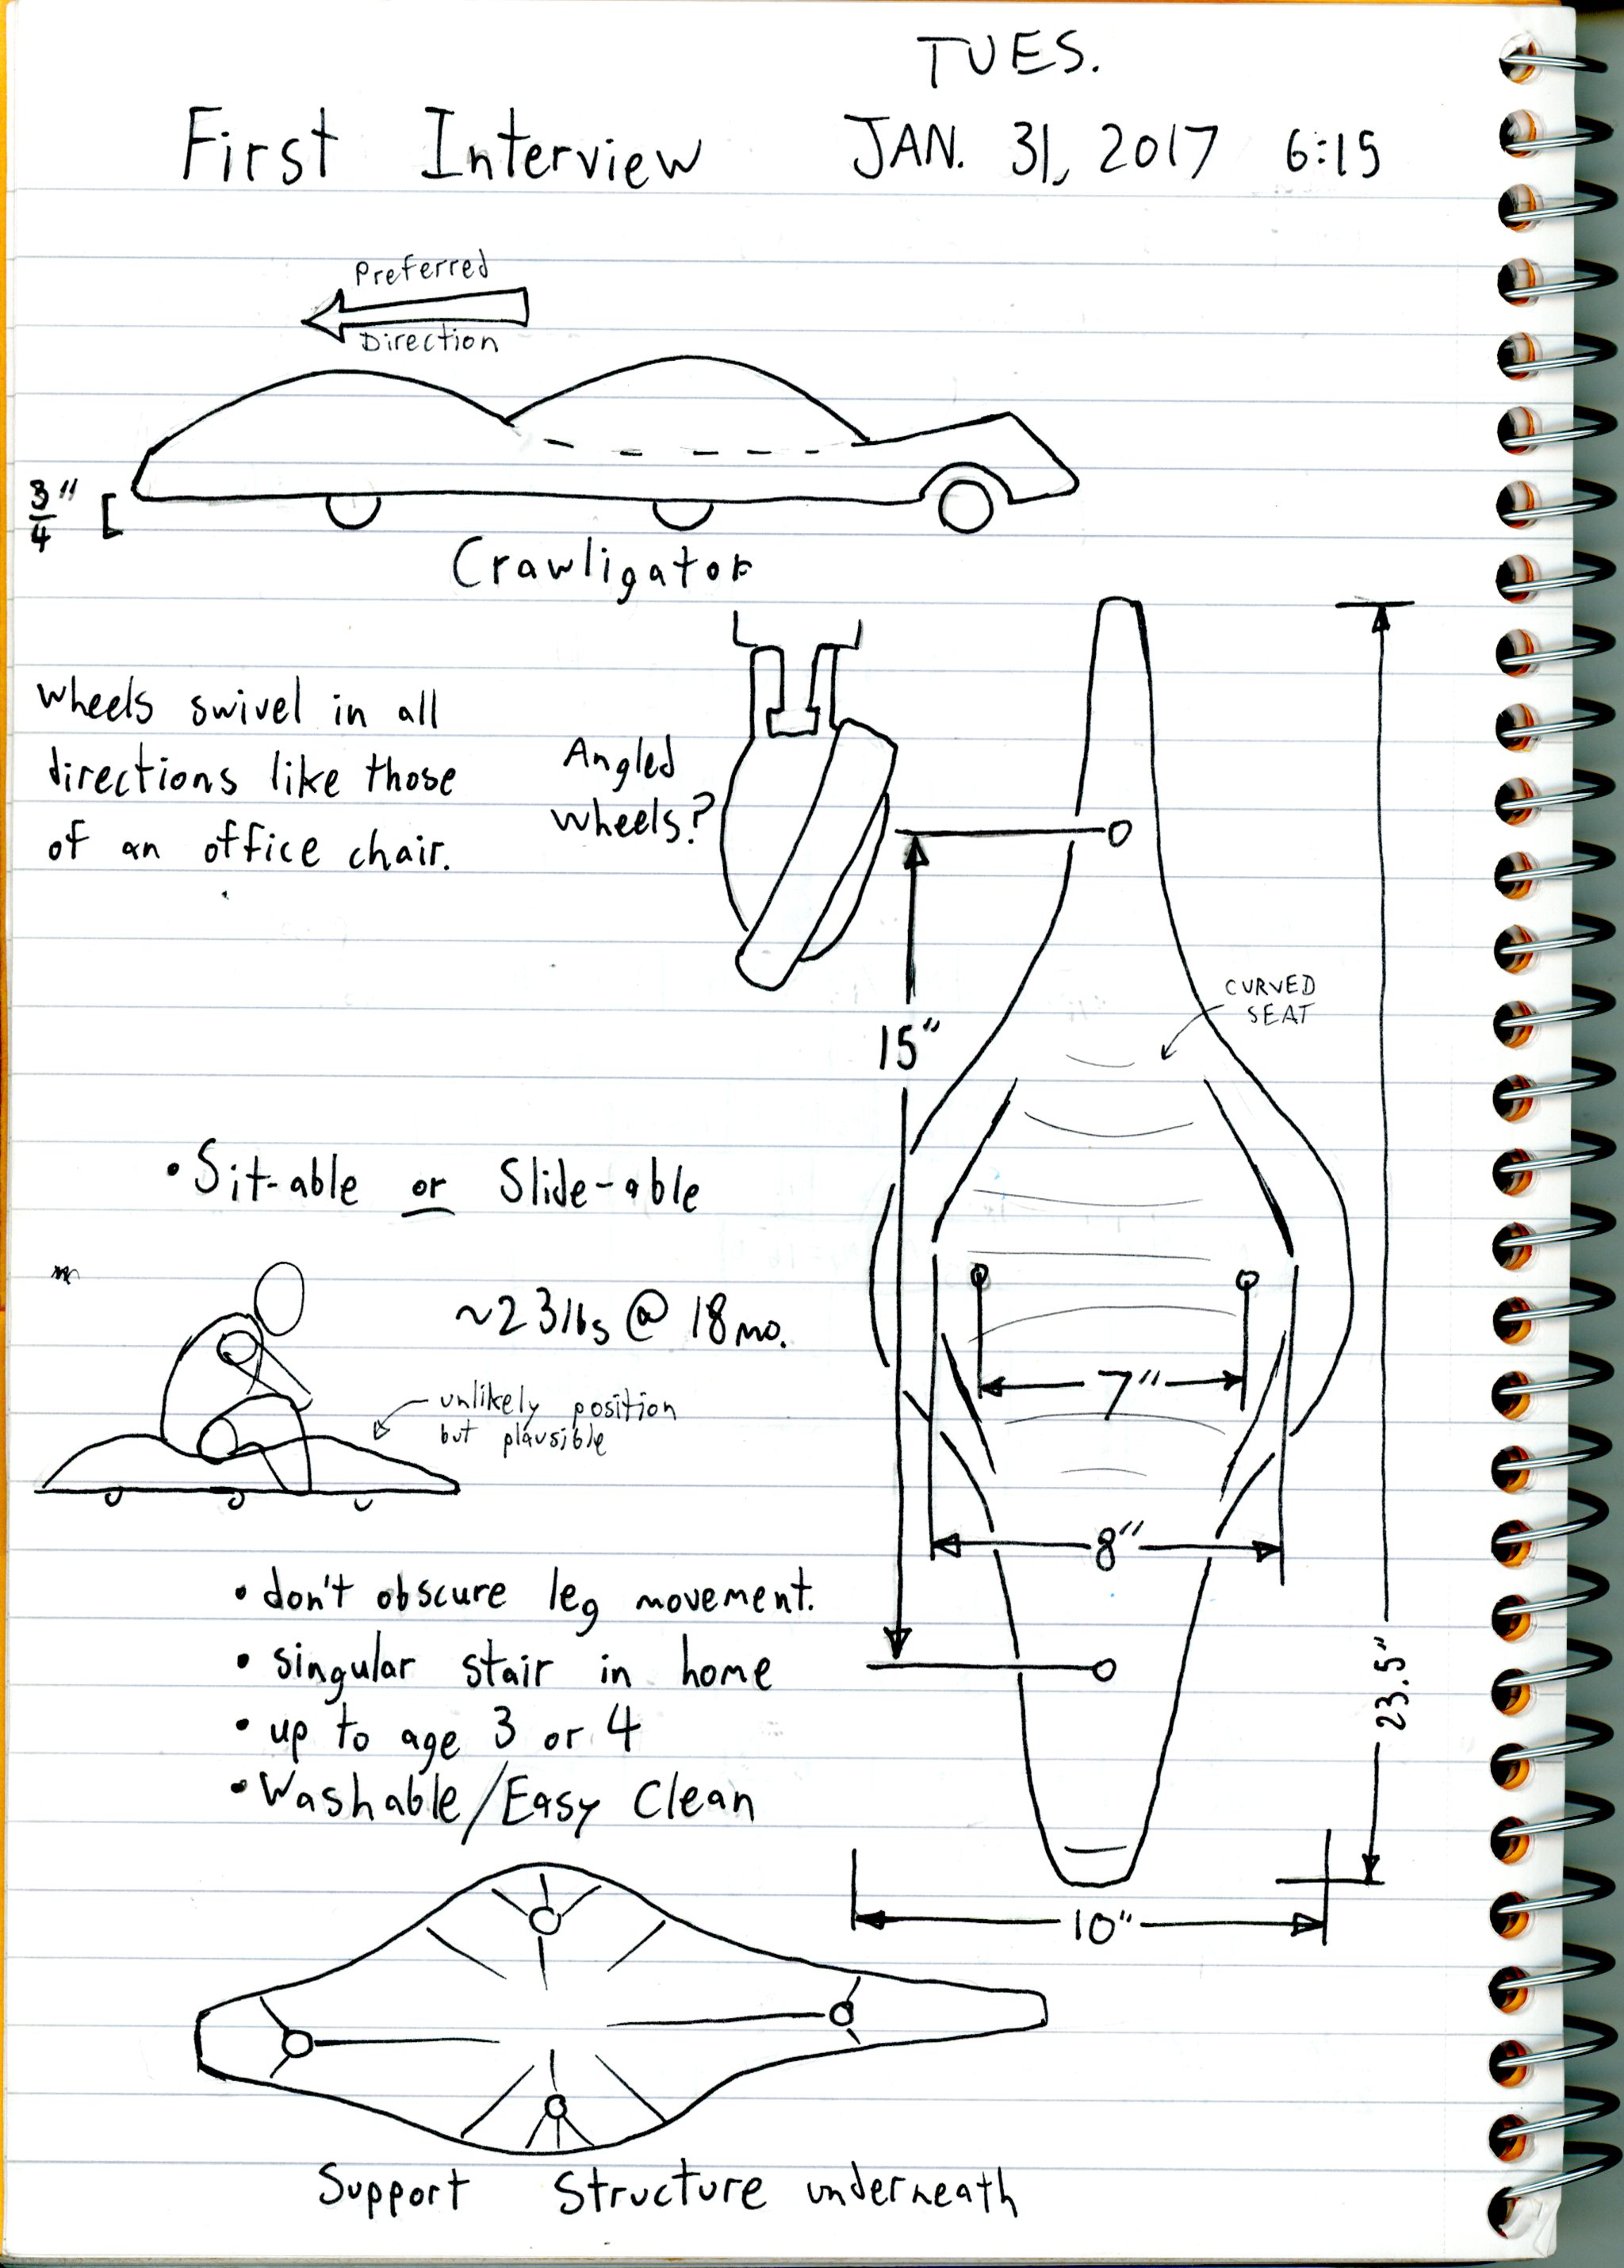 TUES.
First Interview JAN. 31, 2017 6:15
Preferred
Direction
3/4"
Crawligator
wheels swivel in all
directions like those
of an office chair.
Angled
wheels?
CURVED
SEAT
15"
• Sit-able or Slide-able
~23lbs @ 18mo.
unlikely position
but plausible
7"
8"
• don't obscure leg movement.
• singular stair in home
• up to age 3 or 4
• Washable/Easy Clean
23.5"
10"
Support Structure underneath